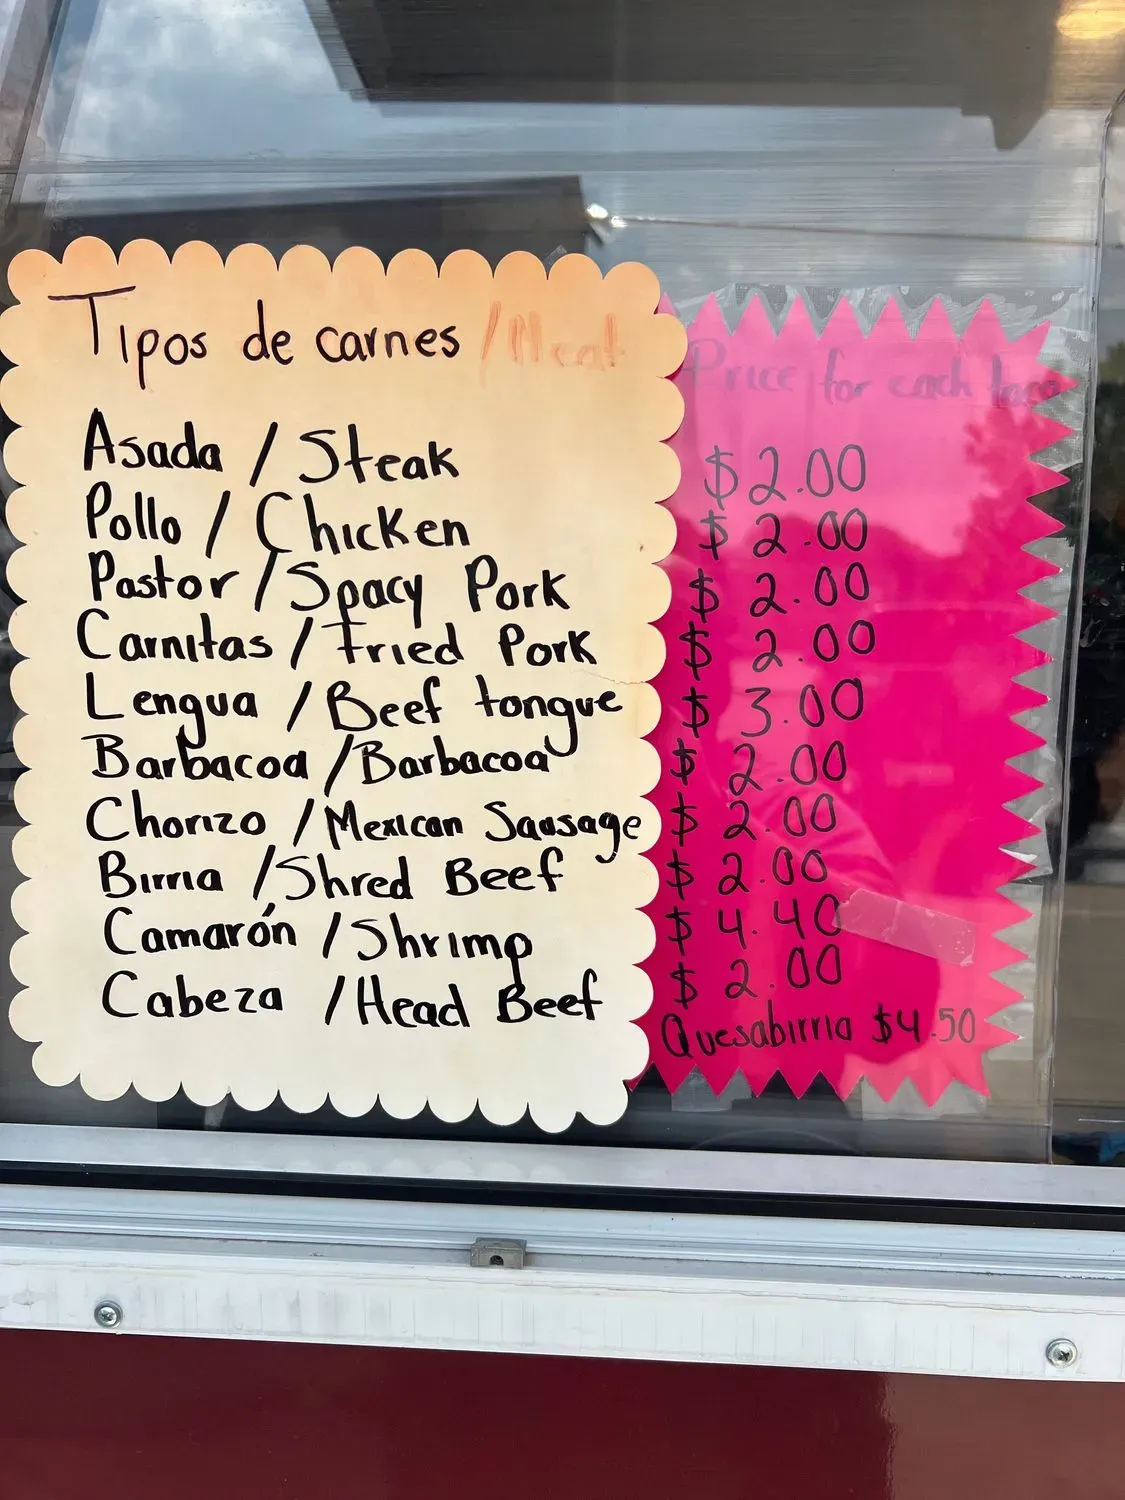 Tipos de carnes / Meat
Price for each taco
Asada / Steak
$2.00
Pollo / Chicken
$2.00
Pastor / Spacy Pork
$2.00
Carnitas / Fried Pork
$2.00
Lengua / Beef tongue
$3.00
Barbacoa / Barbacoa
$2.00
Chorizo / Mexican Sausage
$2.00
Birria / Shred Beef
$2.00
Camarón / Shrimp
$4.40
Cabeza / Head Beef
$2.00
Quesabirria $4.50